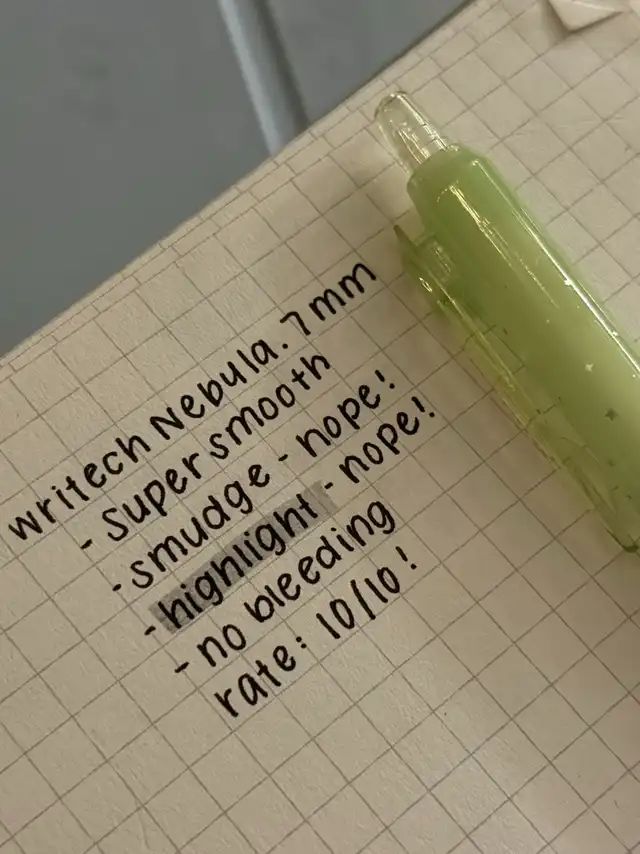 writech Nebula .7mm
- super smooth
- smudge - nope!
- highlight - nope!
- no bleeding
rate: 10/10!